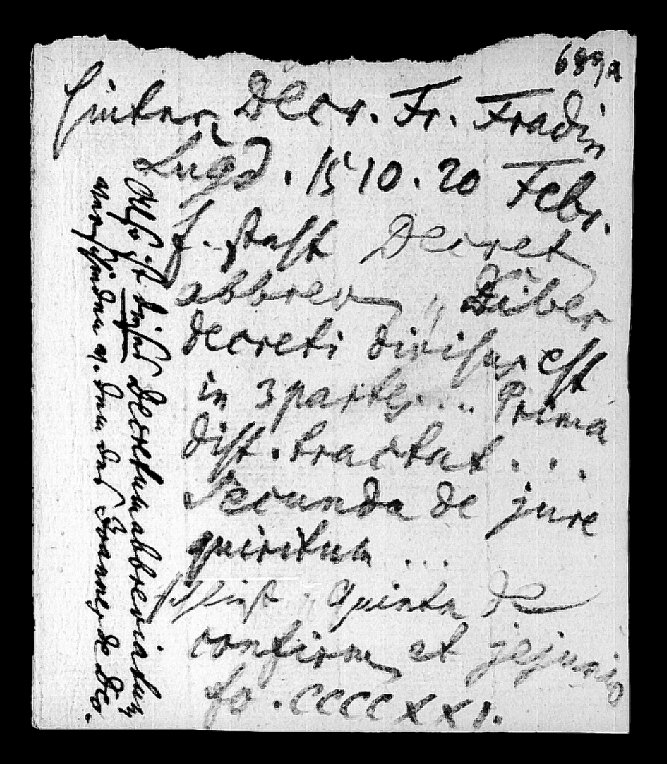 689a
hinter Decr. Fr. Fradin
Lugd. 1510. 20 Febr.
f. steht Decret
abbrev „ Liber
decreti divisus est
in 3 partes... Prima
dist. tractat...
Secunda de jure
quiritum...
schließt „ Quinta de
confirm et jejunio
fo. CCCCXXI.
Also ist dieses Decretum abbreviatum
verschieden v. dem des Joannes de Deo.